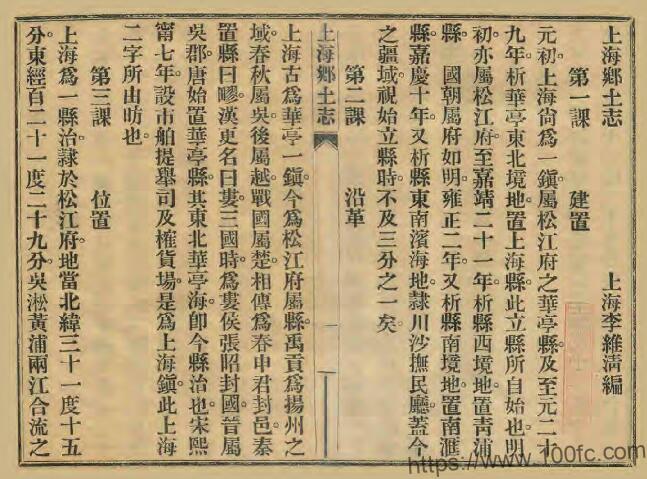 上海鄉土志　上海李維清編
第一課　建置
元初上海尙爲一鎭屬松江府之華亭縣及至元二十
九年析華亭東北境地置上海縣此立縣所自始也明
初亦屬松江府至嘉靖二十一年析縣西境地置靑浦
縣　國朝屬府如明雍正二年又析縣南境地置南滙
縣嘉慶十年又析縣東南濱海地隸川沙撫民廳蓋今
之疆域視始立縣時不及三分之一矣
第二課　沿革
上海鄉土志
上海古爲華亭一鎭今爲松江府屬縣禹貢爲揚州之
域春秋屬吳後屬越戰國屬楚相傳爲春申君封邑秦
置縣曰疁漢更名曰婁三國時爲婁侯張昭封國晉屬
吳郡唐始置華亭縣其東北華亭海卽今縣治也宋熙
甯七年設市舶提舉司及榷貨場是爲上海鎭此上海
二字所由昉也
第三課　位置
上海爲一縣治隸於松江府地當北緯三十一度十五
分東經百二十一度二十九分吳淞黃浦兩江合流之
https://www.100fc.com